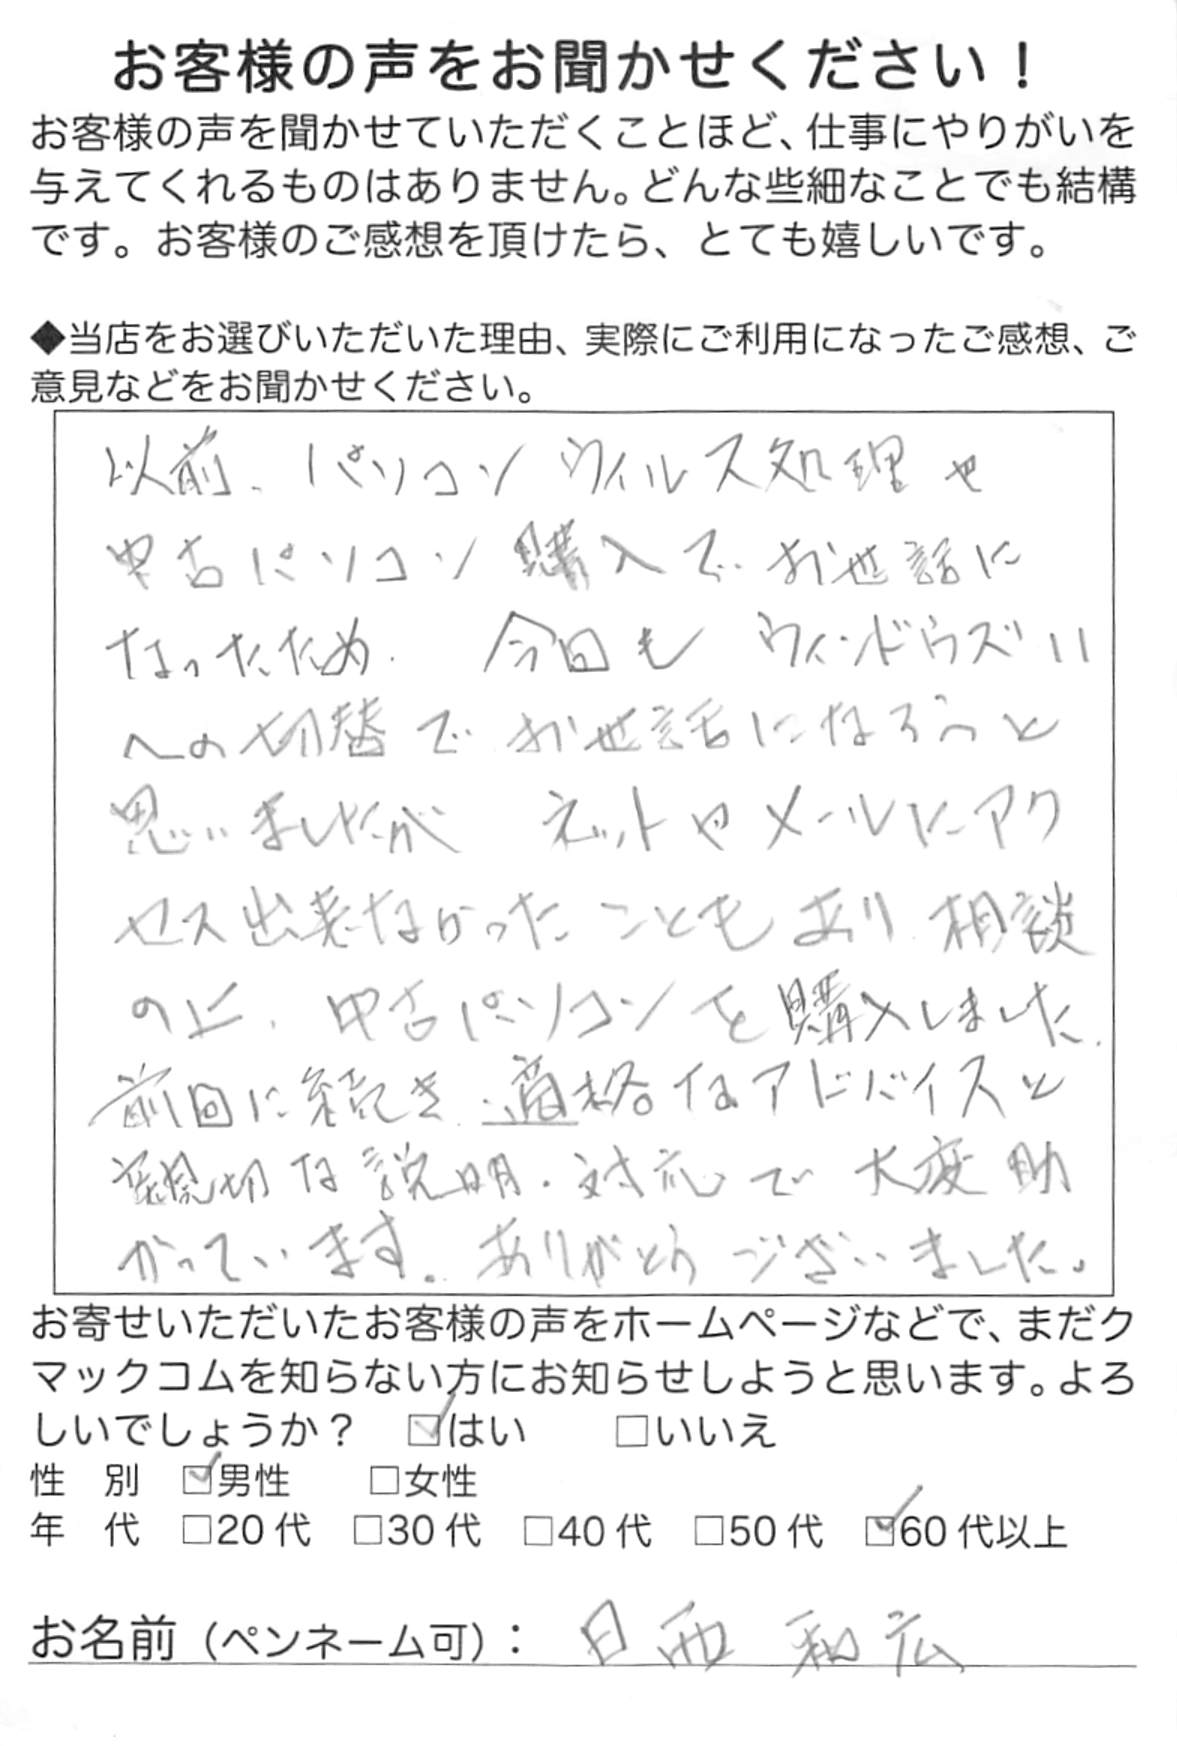 お客様の声をお聞かせください！
お客様の声を聞かせていただくことほど、仕事にやりがいを
与えてくれるものはありません。どんな些細なことでも結構
です。お客様のご感想を頂けたら、とても嬉しいです。
◆当店をお選びいただいた理由、実際にご利用になったご感想、ご
意見などをお聞かせください。
以前、パソコンウィルス処理や
中古パソコン購入でお世話に
なったため、今回も ウィンドウズ11
への切替でお世話になろうと
思いましたが ネットやメールにアク
セス出来なかったこともあり 相談
の上、中古パソコンを購入しました。
前回に続き、適格なアドバイスと
親切な説明・対応で大変助
かっています。ありがとうございました。
お寄せいただいたお客様の声をホームページなどで、まだク
マックコムを知らない方にお知らせしようと思います。よろ
しいでしょうか？ ☑はい □いいえ
性 別 ☑男性 □女性
年 代 □20代 □30代 □40代 □50代 ☑60代以上
お名前（ペンネーム可）： 日西 和広